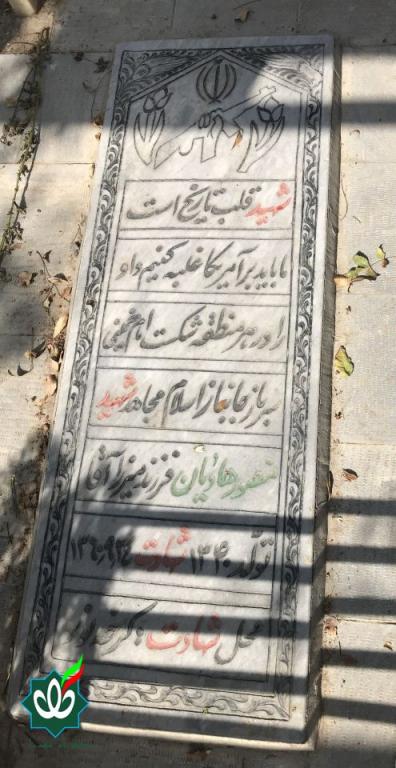 شهید قلب تاریخ است
ما باید بر آمریکا غلبه کنیم و او
را در هر منطقه شکست امام خمینی
سرباز جانباز اسلام مجاهد شهید
منصور هائیان فرزند میرزا آقا
تولد ۱۳۴۰ شهادت
محل شهادت